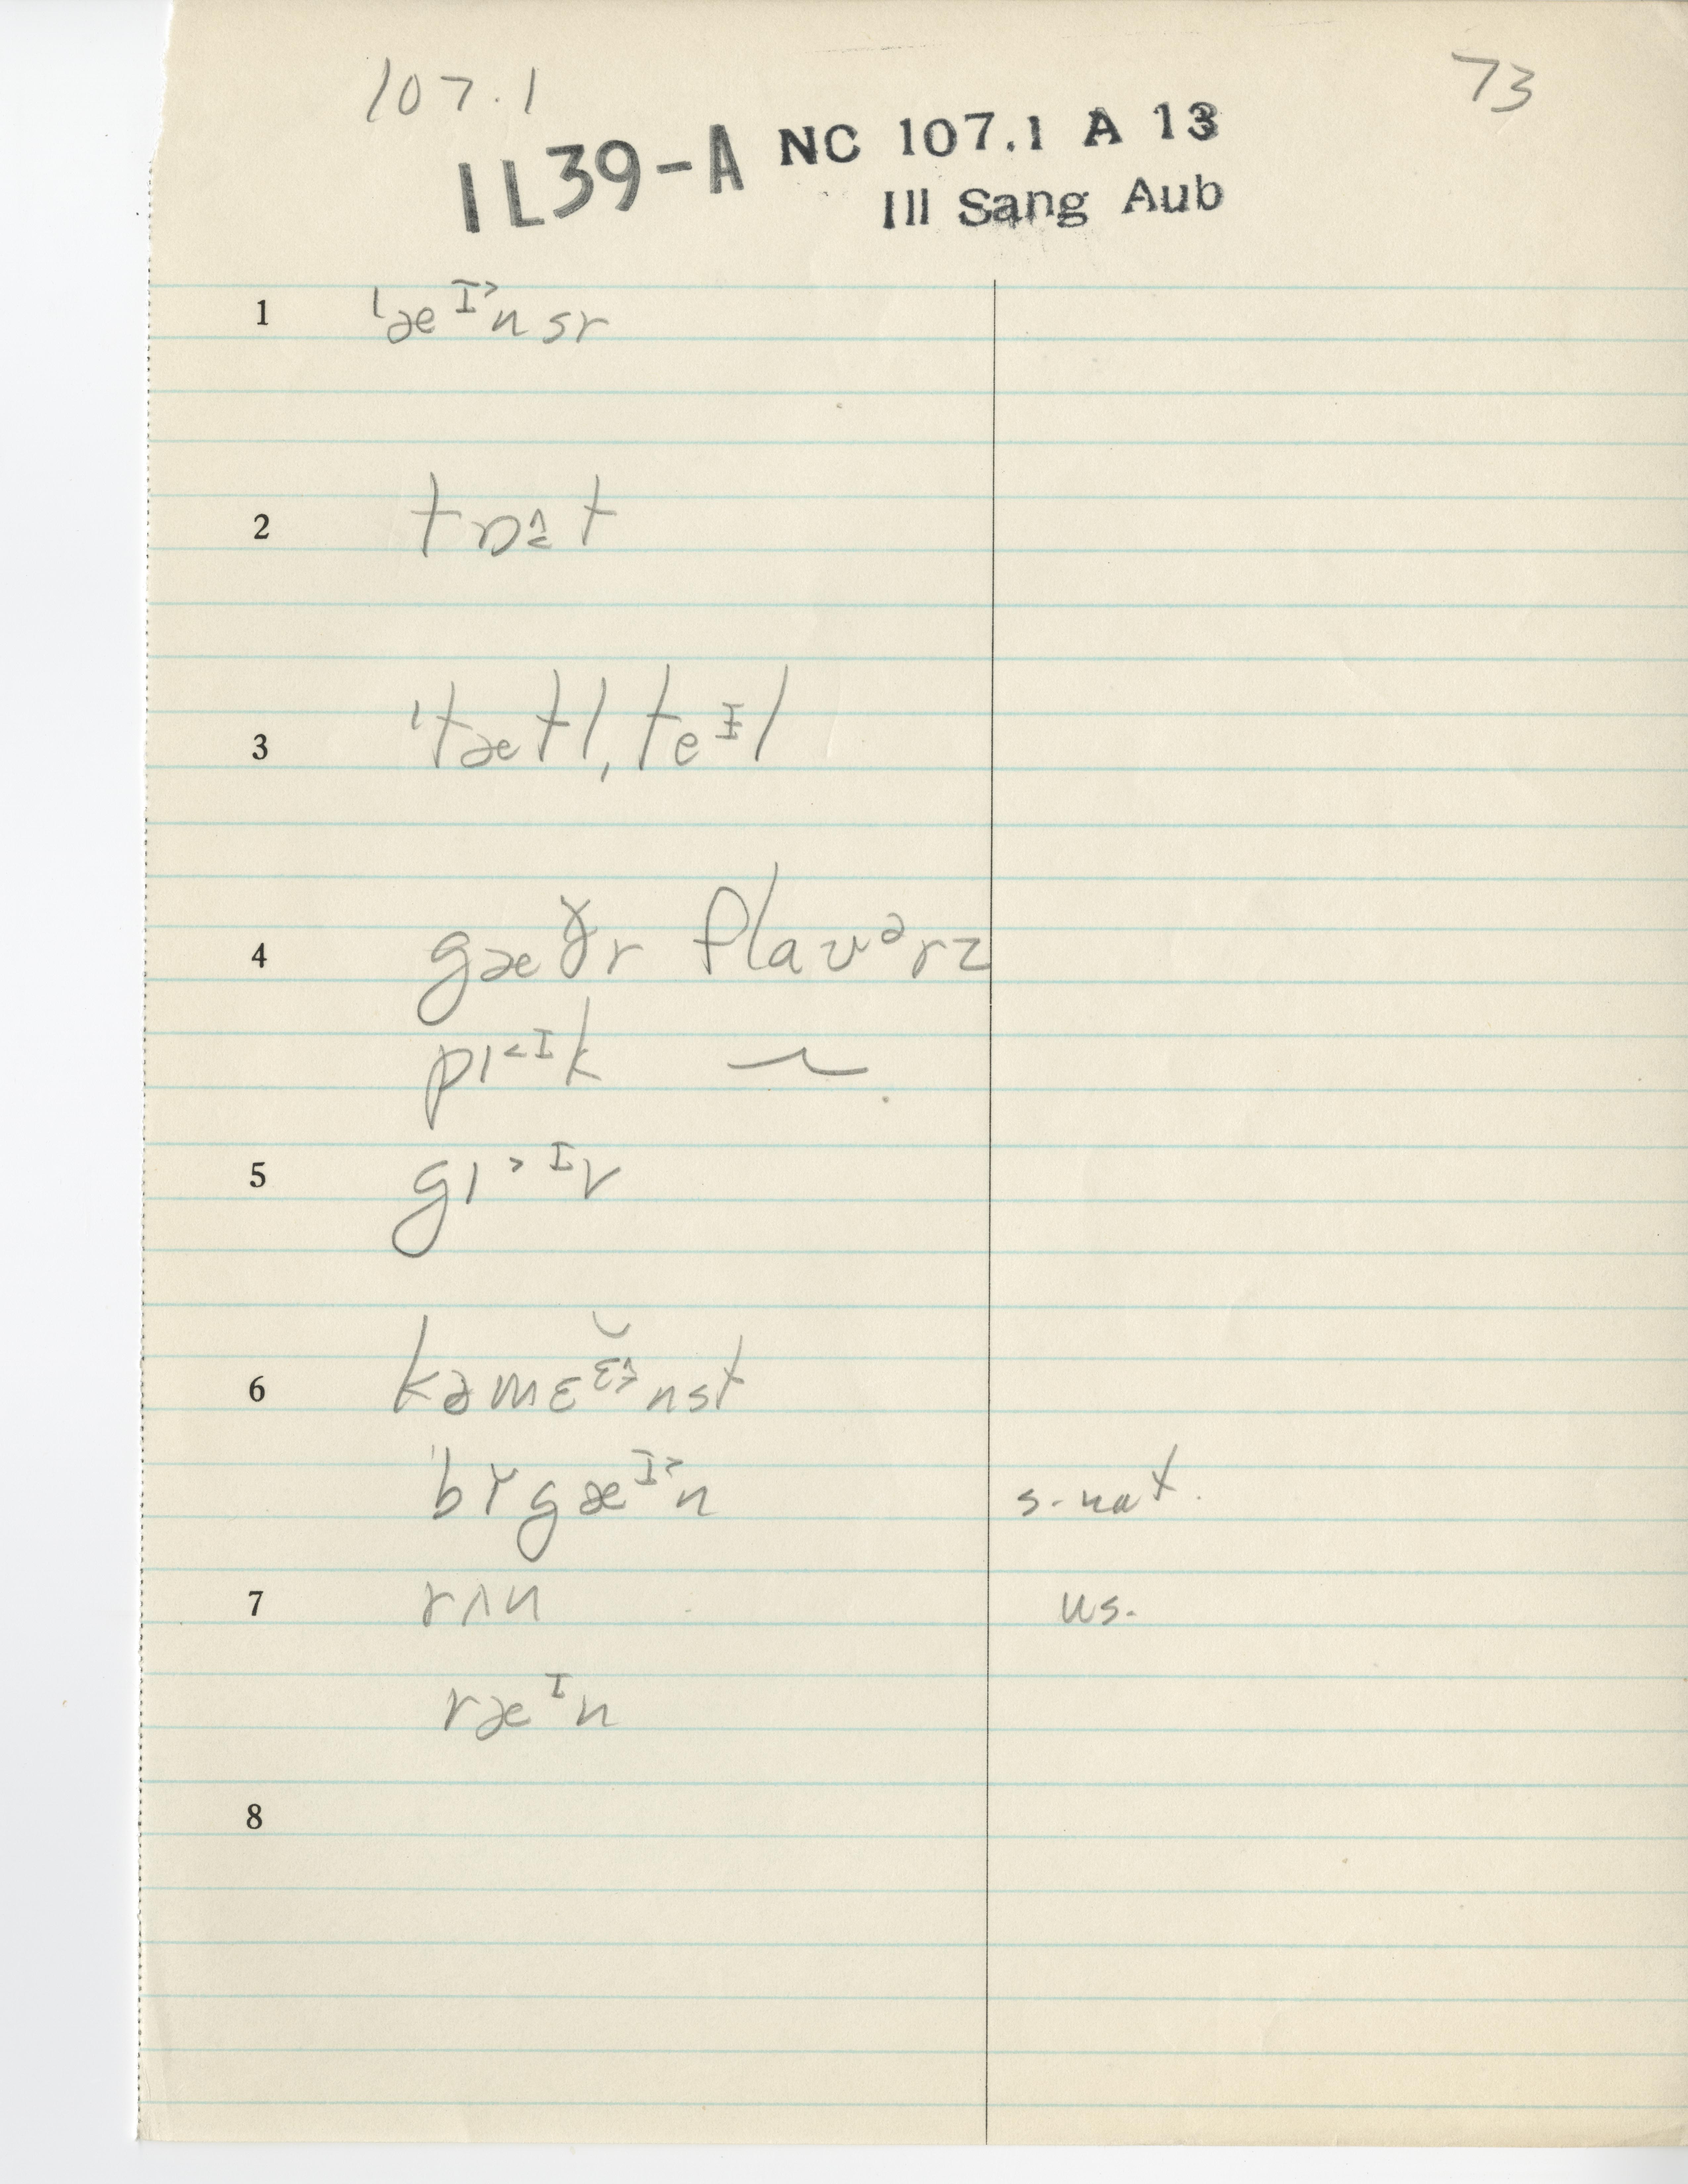 107.1
73
IL39-A NC 107.1 A 13
Ill Sang Aub
1 ˈæᴵ˃nsr
2 tɒɒ̭̂t
3 ˈtætl, teᴵl
4 gæðr flauᵊrz
pɪ˂ᴵk ~
5 gɪ˃ᴵv
6 kəmɛᵋ̆nst
bɪ̆gæᴵ˃n s-nat.
7 rʌn us.
ræᴵn
8